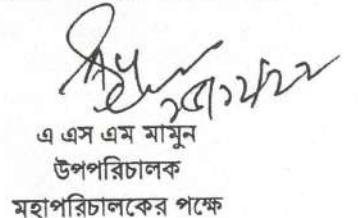 এ এস এম মামুন
উপপরিচালক
মহাপরিচালকের পক্ষে